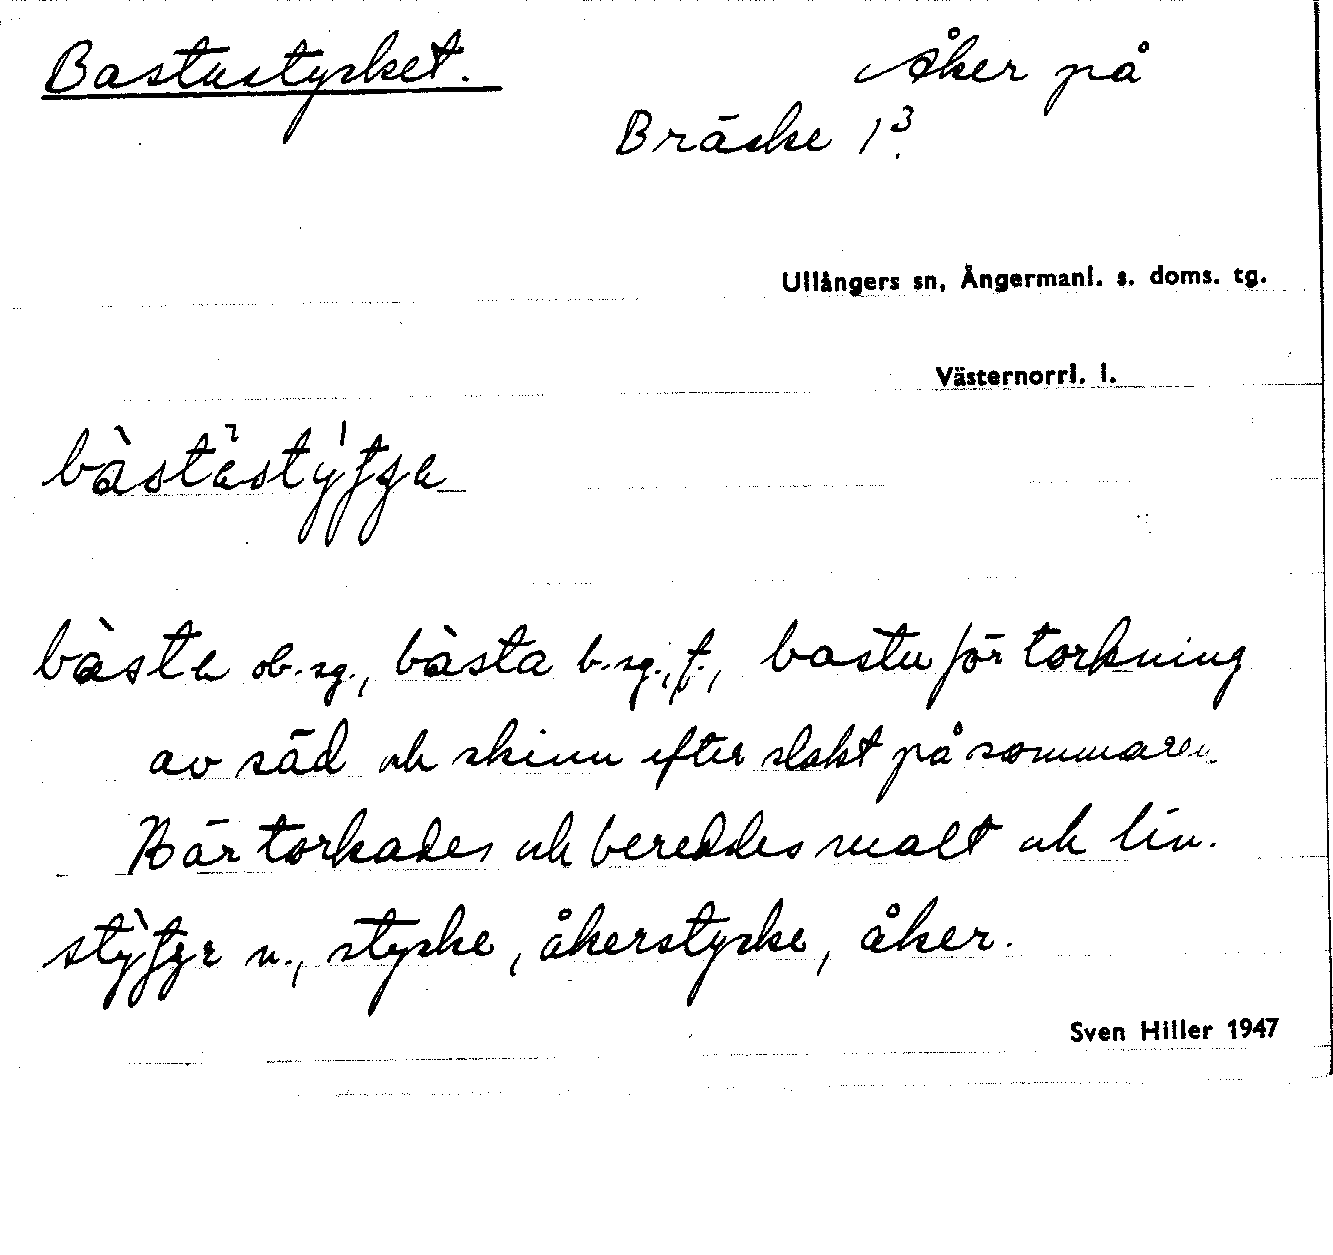 Bastustycket. Åker på
Bräcke 1³.
Ullångers sn, Ångermanl. s. doms. tg.
Västernorrl. l.
bàsta ob. sg., bàsta b. sg., f., bastu för torkning
av säd och skinn efter slakt på sommaren.
Här torkades och bereddes malt och lin.
n., stycke, åkerstycke, åker.
Sven Hiller 1947